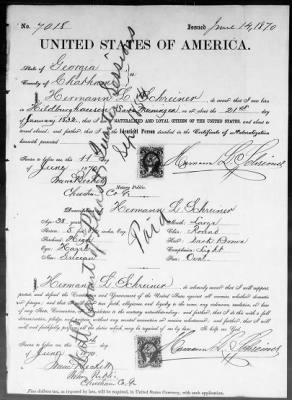 No. 7018 Issued June 14, 1870
UNITED STATES OF AMERICA.
State of Georgia
County of Chatham
I, Hermann L Schreiner, do swear that I was born
in Hildburghausen Saxe Meiningen on or about the 21st day
of January 1832, that I am a NATURALIZED AND LOYAL CITIZEN OF THE UNITED STATES, and about to
travel abroad; and further that I am the Identical Person described in the Certificate of Naturalization
herewith presented.
Sworn to before me this 11 day
of June 1870
Notary Public.
Chatham Co Ga
Hermann L Schreiner
Paris
Description of Hermann L Schreiner
Age: 38 years Mouth: Large
Stature: 5 feet inches, Eng. Chin: Round
Forehead: High Hair: dark Brown
Eyes: Hazel Complexion: Light
Nose: Face: Oval
I, Hermann L Schreiner, do solemnly swear that I will support,
protect, and defend the Constitution and Government of the United States against all enemies, whether domestic
and foreign; and that I will bear true faith, allegiance, and loyalty to the same, any ordinance, resolution, or law
of any State, Convention, or Legislature to the contrary notwithstanding; and further, that I do this with a full
determination, pledge, and purpose, without any mental reservation or evasion whatsoever; and further, that I will
well and faithfully perform all the duties which may be required of me by law. So help me God.
Sworn to before me this 11 day
of June 1870
Notary Public
Chatham Co Ga
Five dollars tax, as imposed by law, will be required, in United States Currency, with each application.